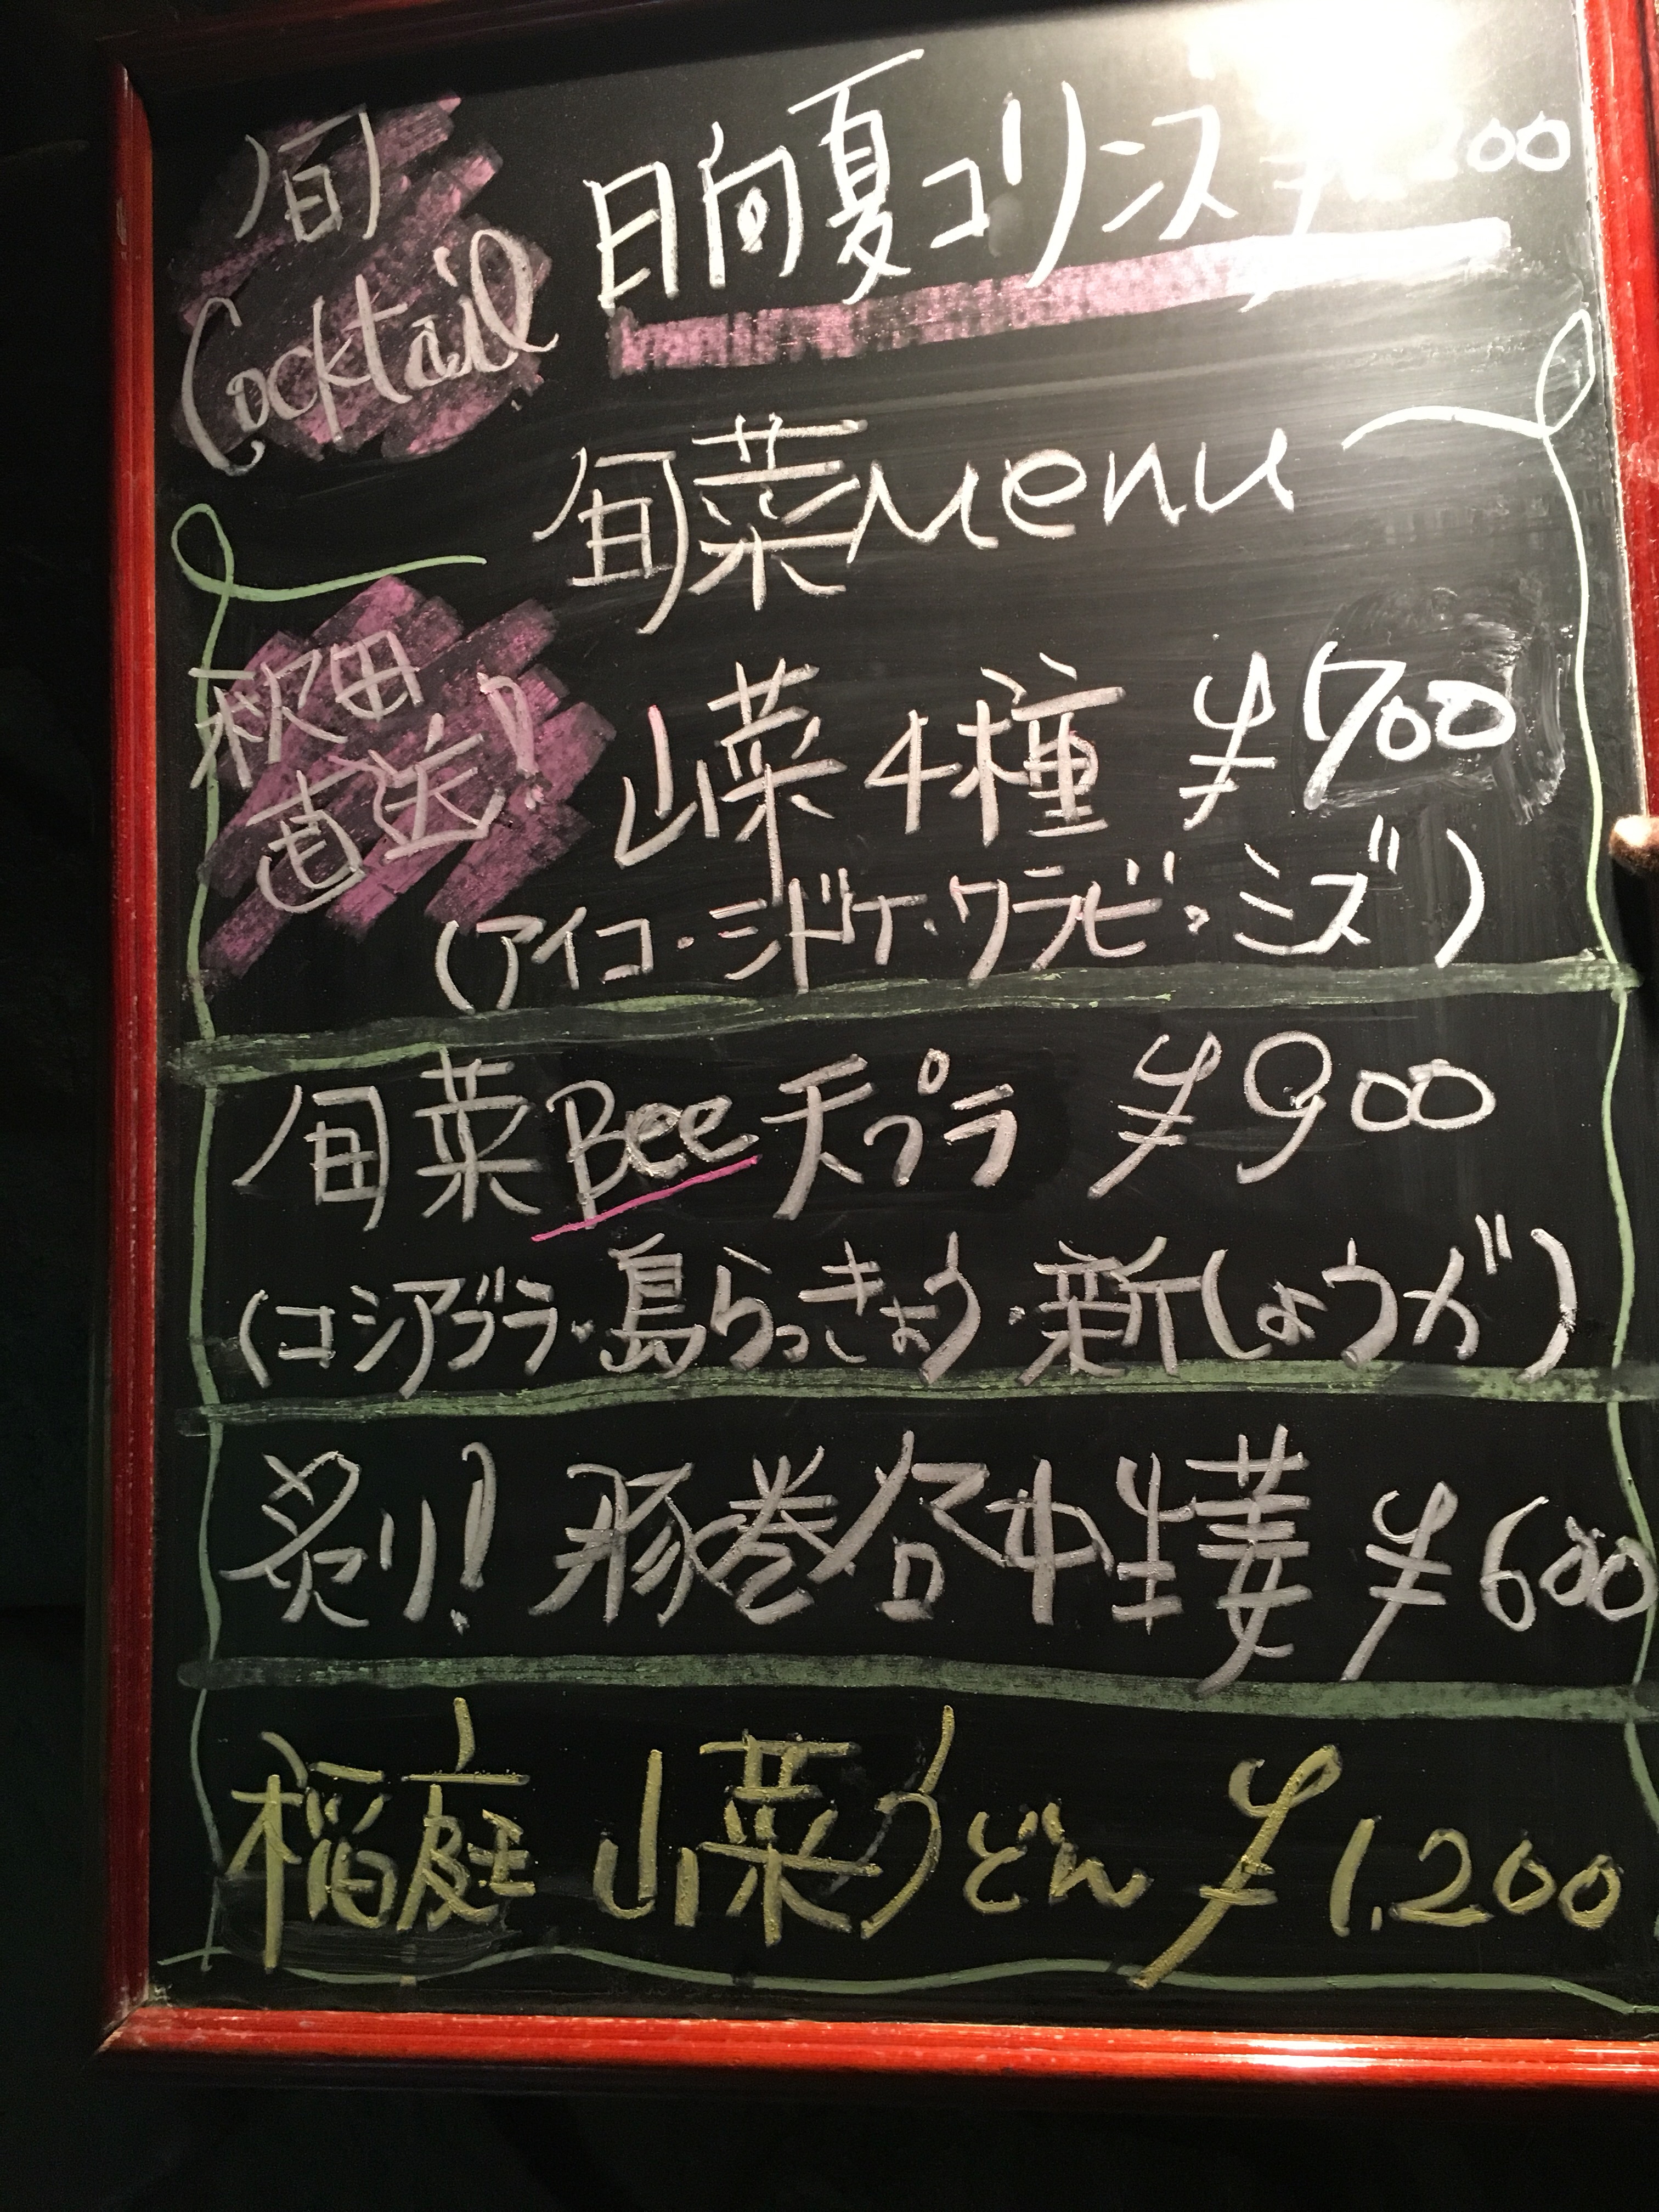 旬
Cocktail
日向夏コリンス
旬菜Menu
秋田
直送!
山菜4種 ¥700
(アイコ・シドケ・ワラビ・ミズ)
旬菜Bee天プラ ¥900
(コシアブラ・島らっきょう・新しょうが)
炙り! 豚巻谷中生姜 ¥600
稲庭 山菜うどん ¥1,200